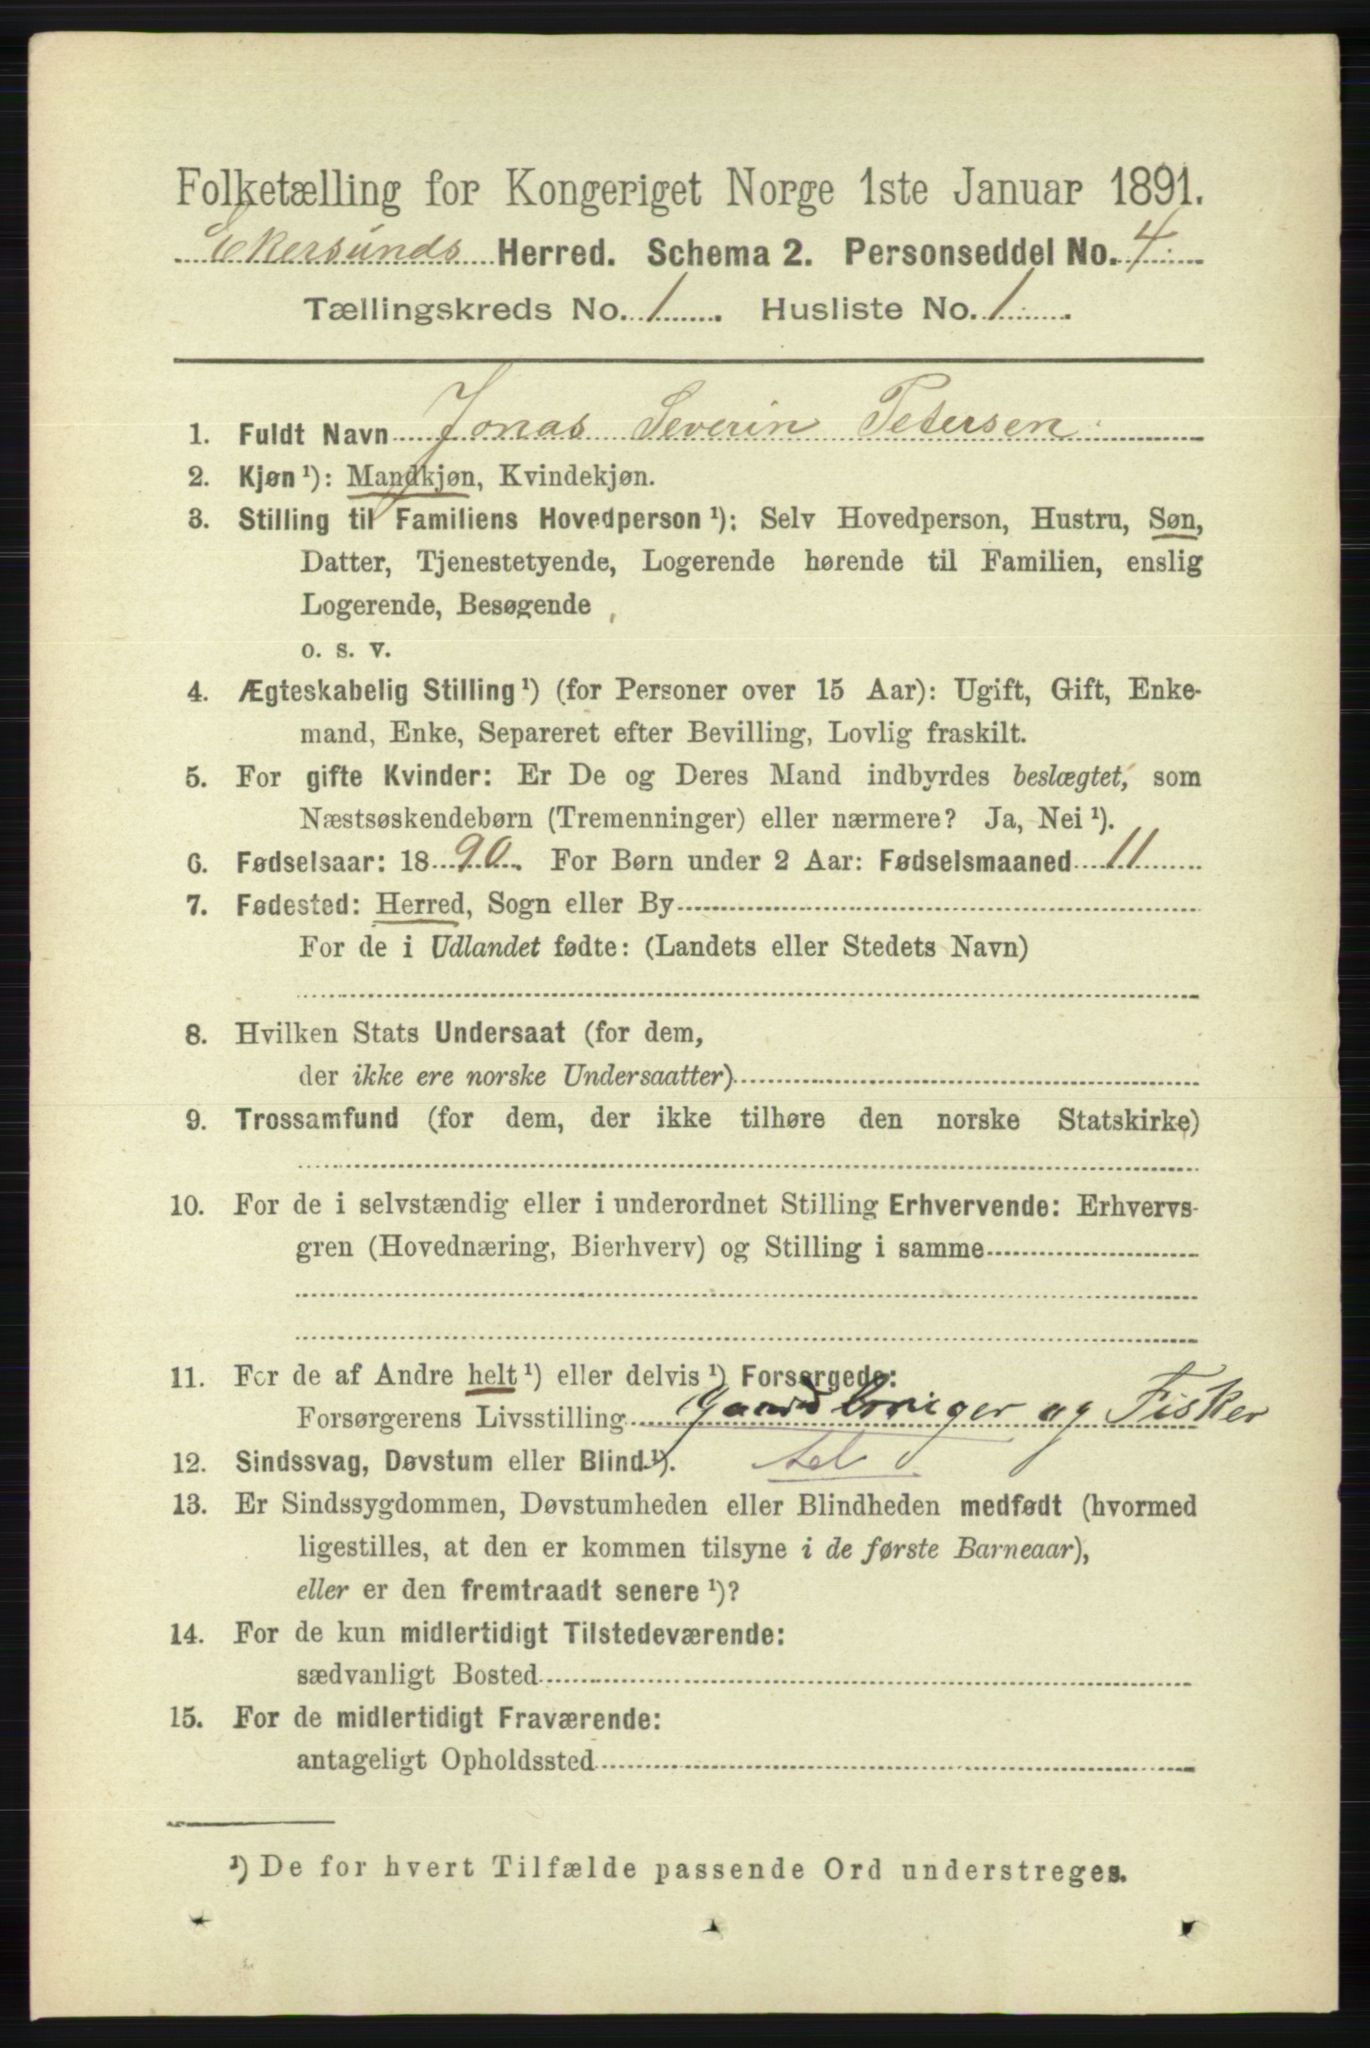 Folketælling for Kongeriget Norge 1ste Januar 1891.
Ekersunds Herred. Schema 2. Personseddel No. 4.
Tællingskreds No. 1. Husliste No. 1.
1. Fuldt Navn Jonas Severin Petersen
2. Kjøn ¹): Mandkjøn, Kvindekjøn.
3. Stilling til Familiens Hovedperson ¹): Selv Hovedperson, Hustru, Søn,
Datter, Tjenestetyende, Logerende hørende til Familien, enslig
Logerende, Besøgende
o. s. v.
4. Ægteskabelig Stilling ¹) (for Personer over 15 Aar): Ugift, Gift, Enke-
mand, Enke, Separeret efter Bevilling, Lovlig fraskilt.
5. For gifte Kvinder: Er De og Deres Mand indbyrdes beslægtet, som
Næstsøskendebørn (Tremenninger) eller nærmere? Ja, Nei ¹).
6. Fødselsaar: 1890. For Børn under 2 Aar: Fødselsmaaned 11
7. Fødested: Herred, Sogn eller By
For de i Udlandet fødte: (Landets eller Stedets Navn)
8. Hvilken Stats Undersaat (for dem,
der ikke ere norske Undersaatter)
9. Trossamfund (for dem, der ikke tilhøre den norske Statskirke)
10. For de i selvstændig eller i underordnet Stilling Erhvervende: Erhvervs-
gren (Hovednæring, Bierhverv) og Stilling i samme
11. For de af Andre helt ¹) eller delvis ¹) Forsørgede:
Forsørgerens Livsstilling Gaardbruger og Fisker
12. Sindssvag, Døvstum eller Blind ¹). sel
13. Er Sindssygdommen, Døvstumheden eller Blindheden medfødt (hvormed
ligestilles, at den er kommen tilsyne i de første Barneaar),
eller er den fremtraadt senere ¹)?
14. For de kun midlertidigt Tilstedeværende:
sædvanligt Bosted
15. For de midlertidigt Fraværende:
antageligt Opholdssted
¹) De for hvert Tilfælde passende Ord understreges.